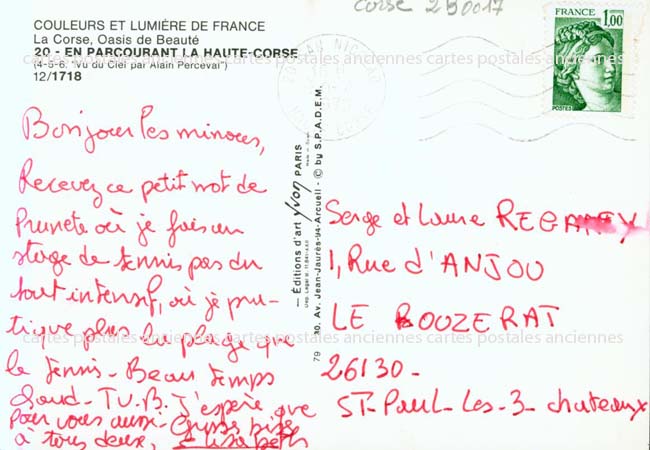 Corse 2B0017
COULEURS ET LUMIÈRE DE FRANCE
La Corse, Oasis de Beauté
20 - EN PARCOURANT LA HAUTE-CORSE
(4-5-6. "Vu du Ciel par Alain Perceval")
12/1718
FRANCE
1,00
POSTES
cartes postales anciennes cartes postales anciennes cartes postales anciennes
Bonjour les minours,
Recevez ce petit mot de
Prunete où je fais un
stage de tennis pas du
tout intensif, où je pra-
tique plus la plage que
le tennis - Beau temps
chaud - T.V.B. J'espère que
pour vous aussi - Grosse bise
à tous deux, Elisabeth
— Éditions d'art yvon PARIS
79 30, Av. Jean-Jaurès-94-Arcueil - © by S.P.A.D.E.M.
Serge et Laure REGAMEY
1, Rue d'ANJOU
LE BOUZERAT
26130 -
ST-Paul-Les-3-chateaux
cartes postales anciennes cartes postales anciennes cartes postales anciennes